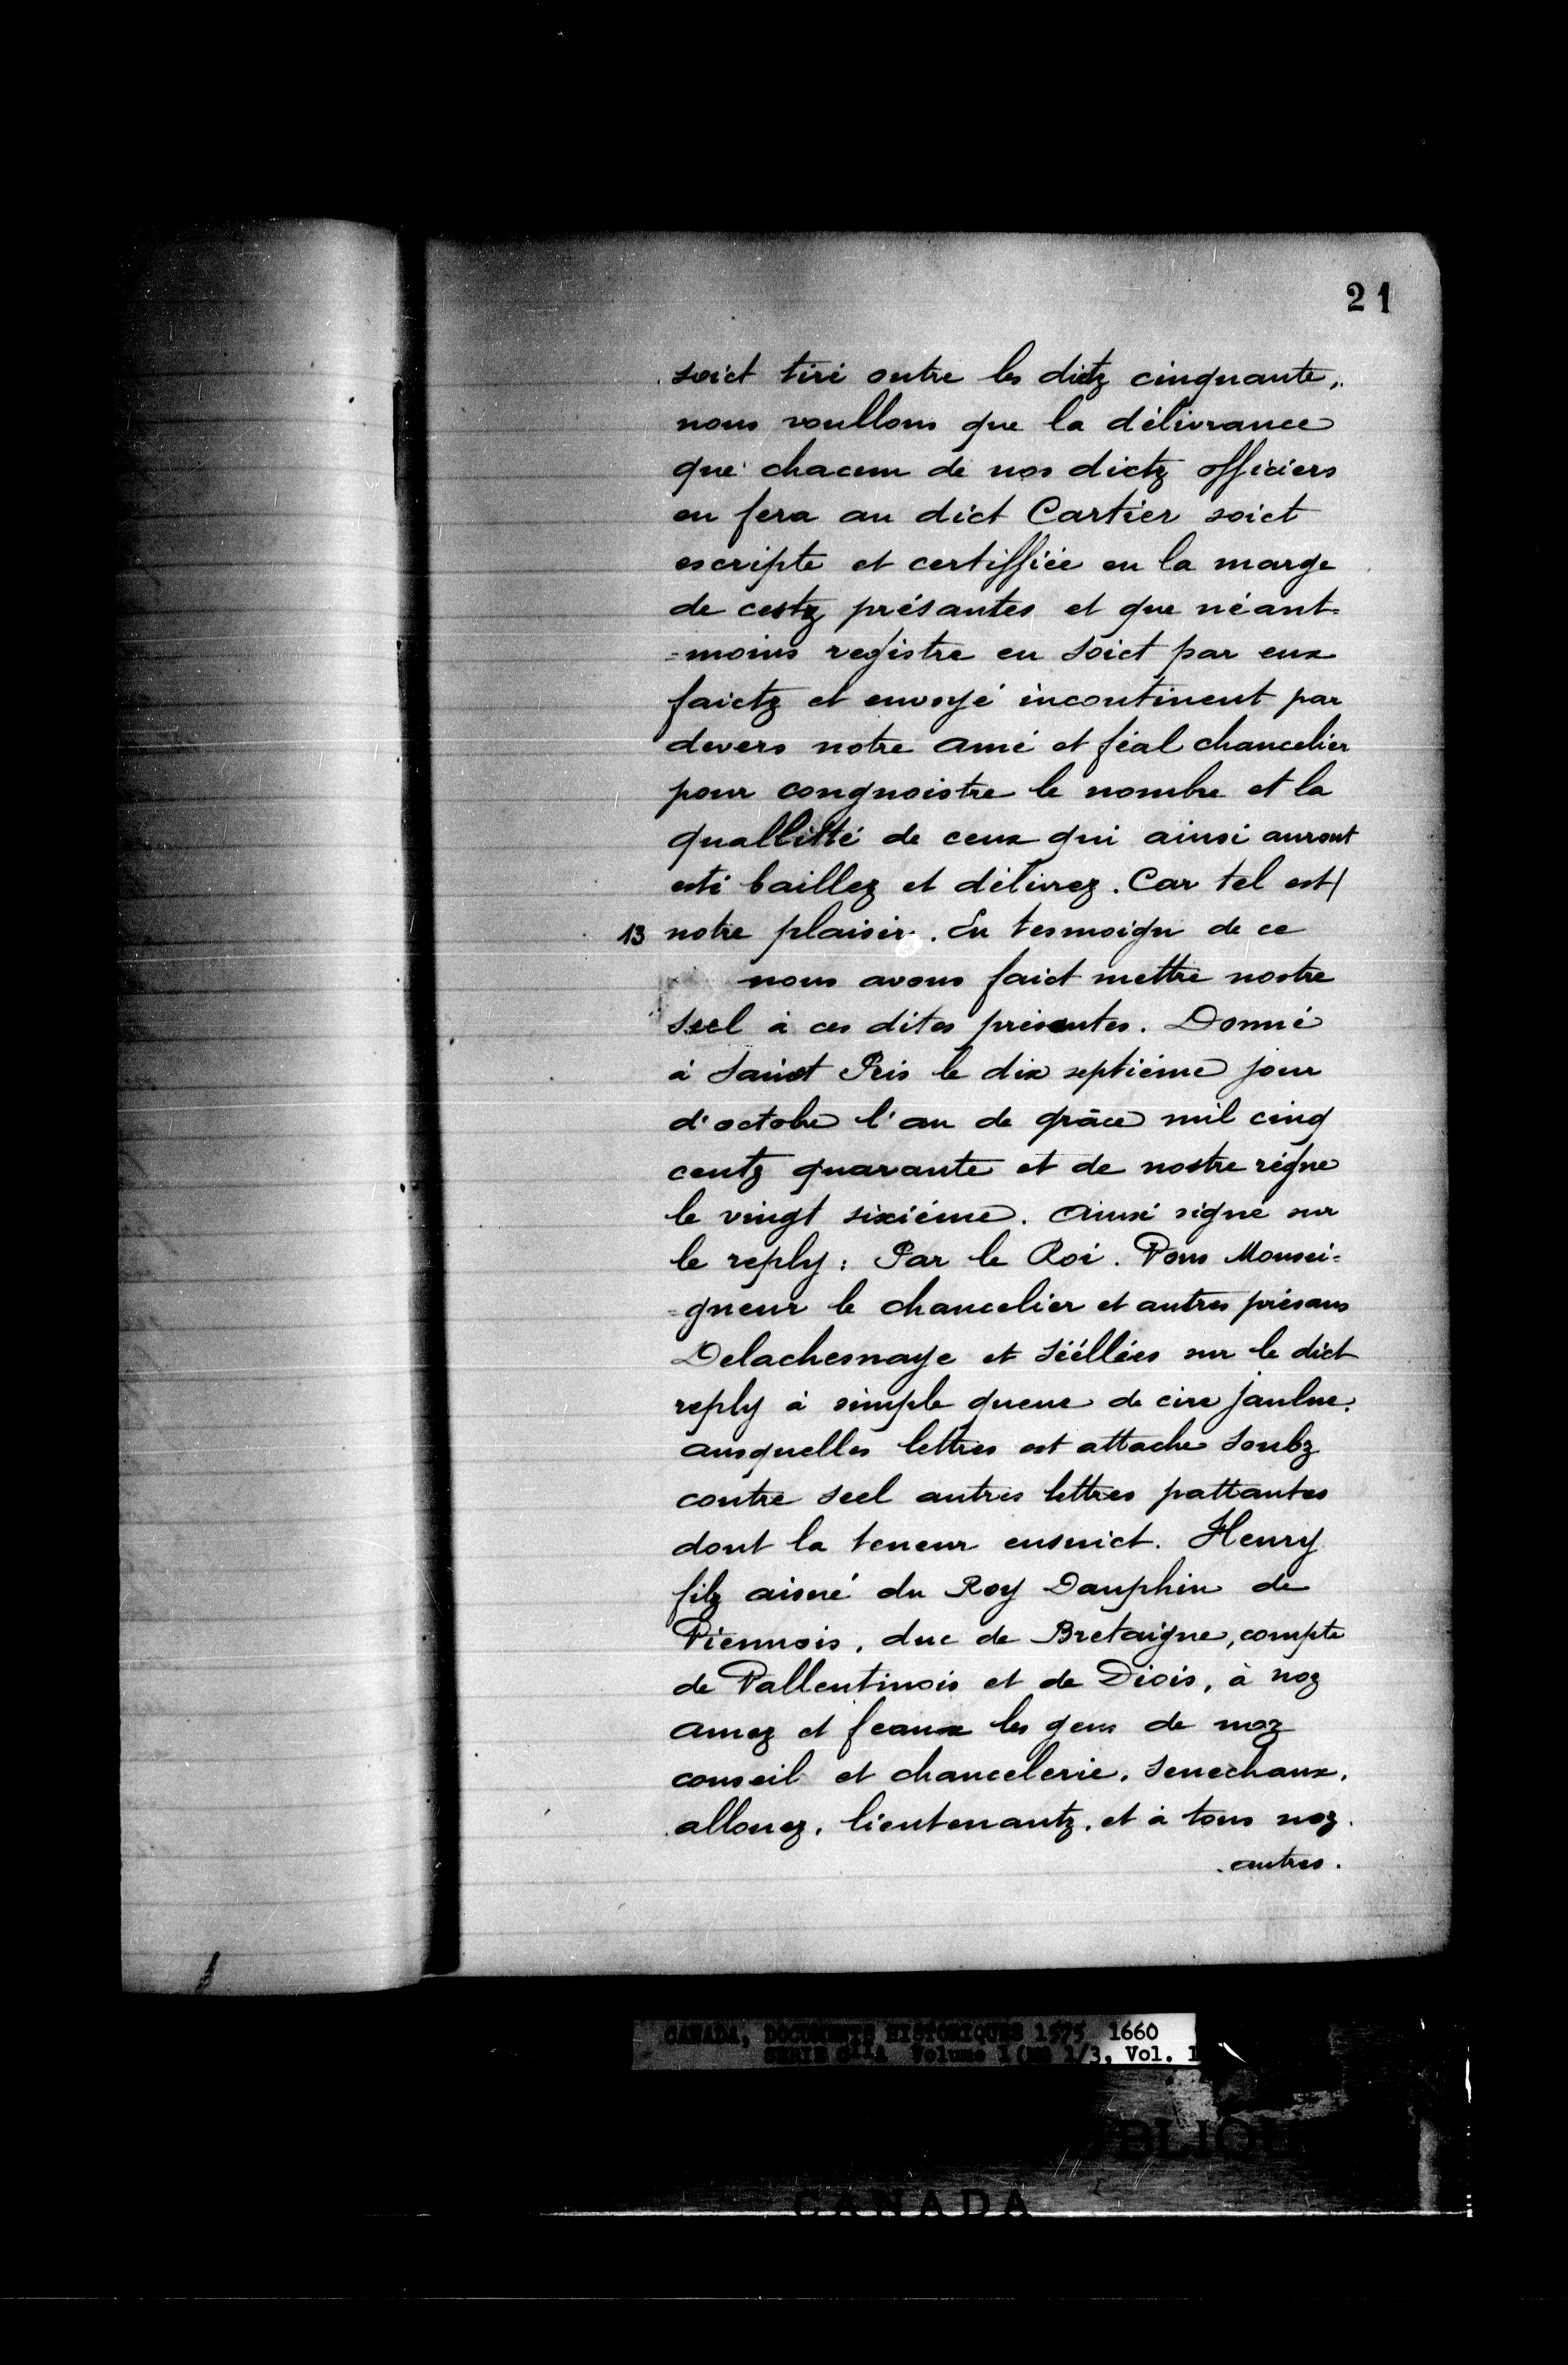 21
soict tiré outre les dictz cinquante,
nous voullons que la délivrance
que chacun de nos dictz officiers
en fera au dict Cartier soict
escripte et certiffiée en la marge
de cestz présantes et que néant-
=moins registre en soict par eux
faictz et envoyé incontinent par
devers notre amé et féal chancelier
pour congnoistre le nombre et la
quallitté de ceux qui ainsi auront
esté baillez et délivrez. Car tel est/
13 notre plaisir. En tesmoign de ce
nous avons faict mettre nostre
seel à ces dites présentes. Donné
à Sainct Pris le dix septième jour
d'octobre l'an de grâce mil cinq
centz quarante et de nostre règne
le vingt sixième. Ainsi signé sur
le reply: Par le Roi. Vous Monsei=
=gneur le chancelier et autres présans
Delachesnaye et séellées sur le dict
reply à simple queue de cire jaulne.
ausquelles lettres est attache soubz
contre seel autres lettres pattantes
dont la teneur ensuict. Henry
filz aisné du Roy Dauphin de
Viennois, duc de Bretaigne, compte
de Vallentinois et de Diois, à noz
amez et feaux les gens de noz
conseil et chancelerie, senechaux,
allouez, lieutenantz, et à tous noz
autres.
CANADA, DOCUMENTS HISTORIQUES 1575 1660
SERIE C11A Volume 1(MG 1/3, Vol. 1
CANADA